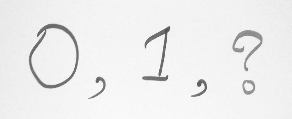 0, 1, ?